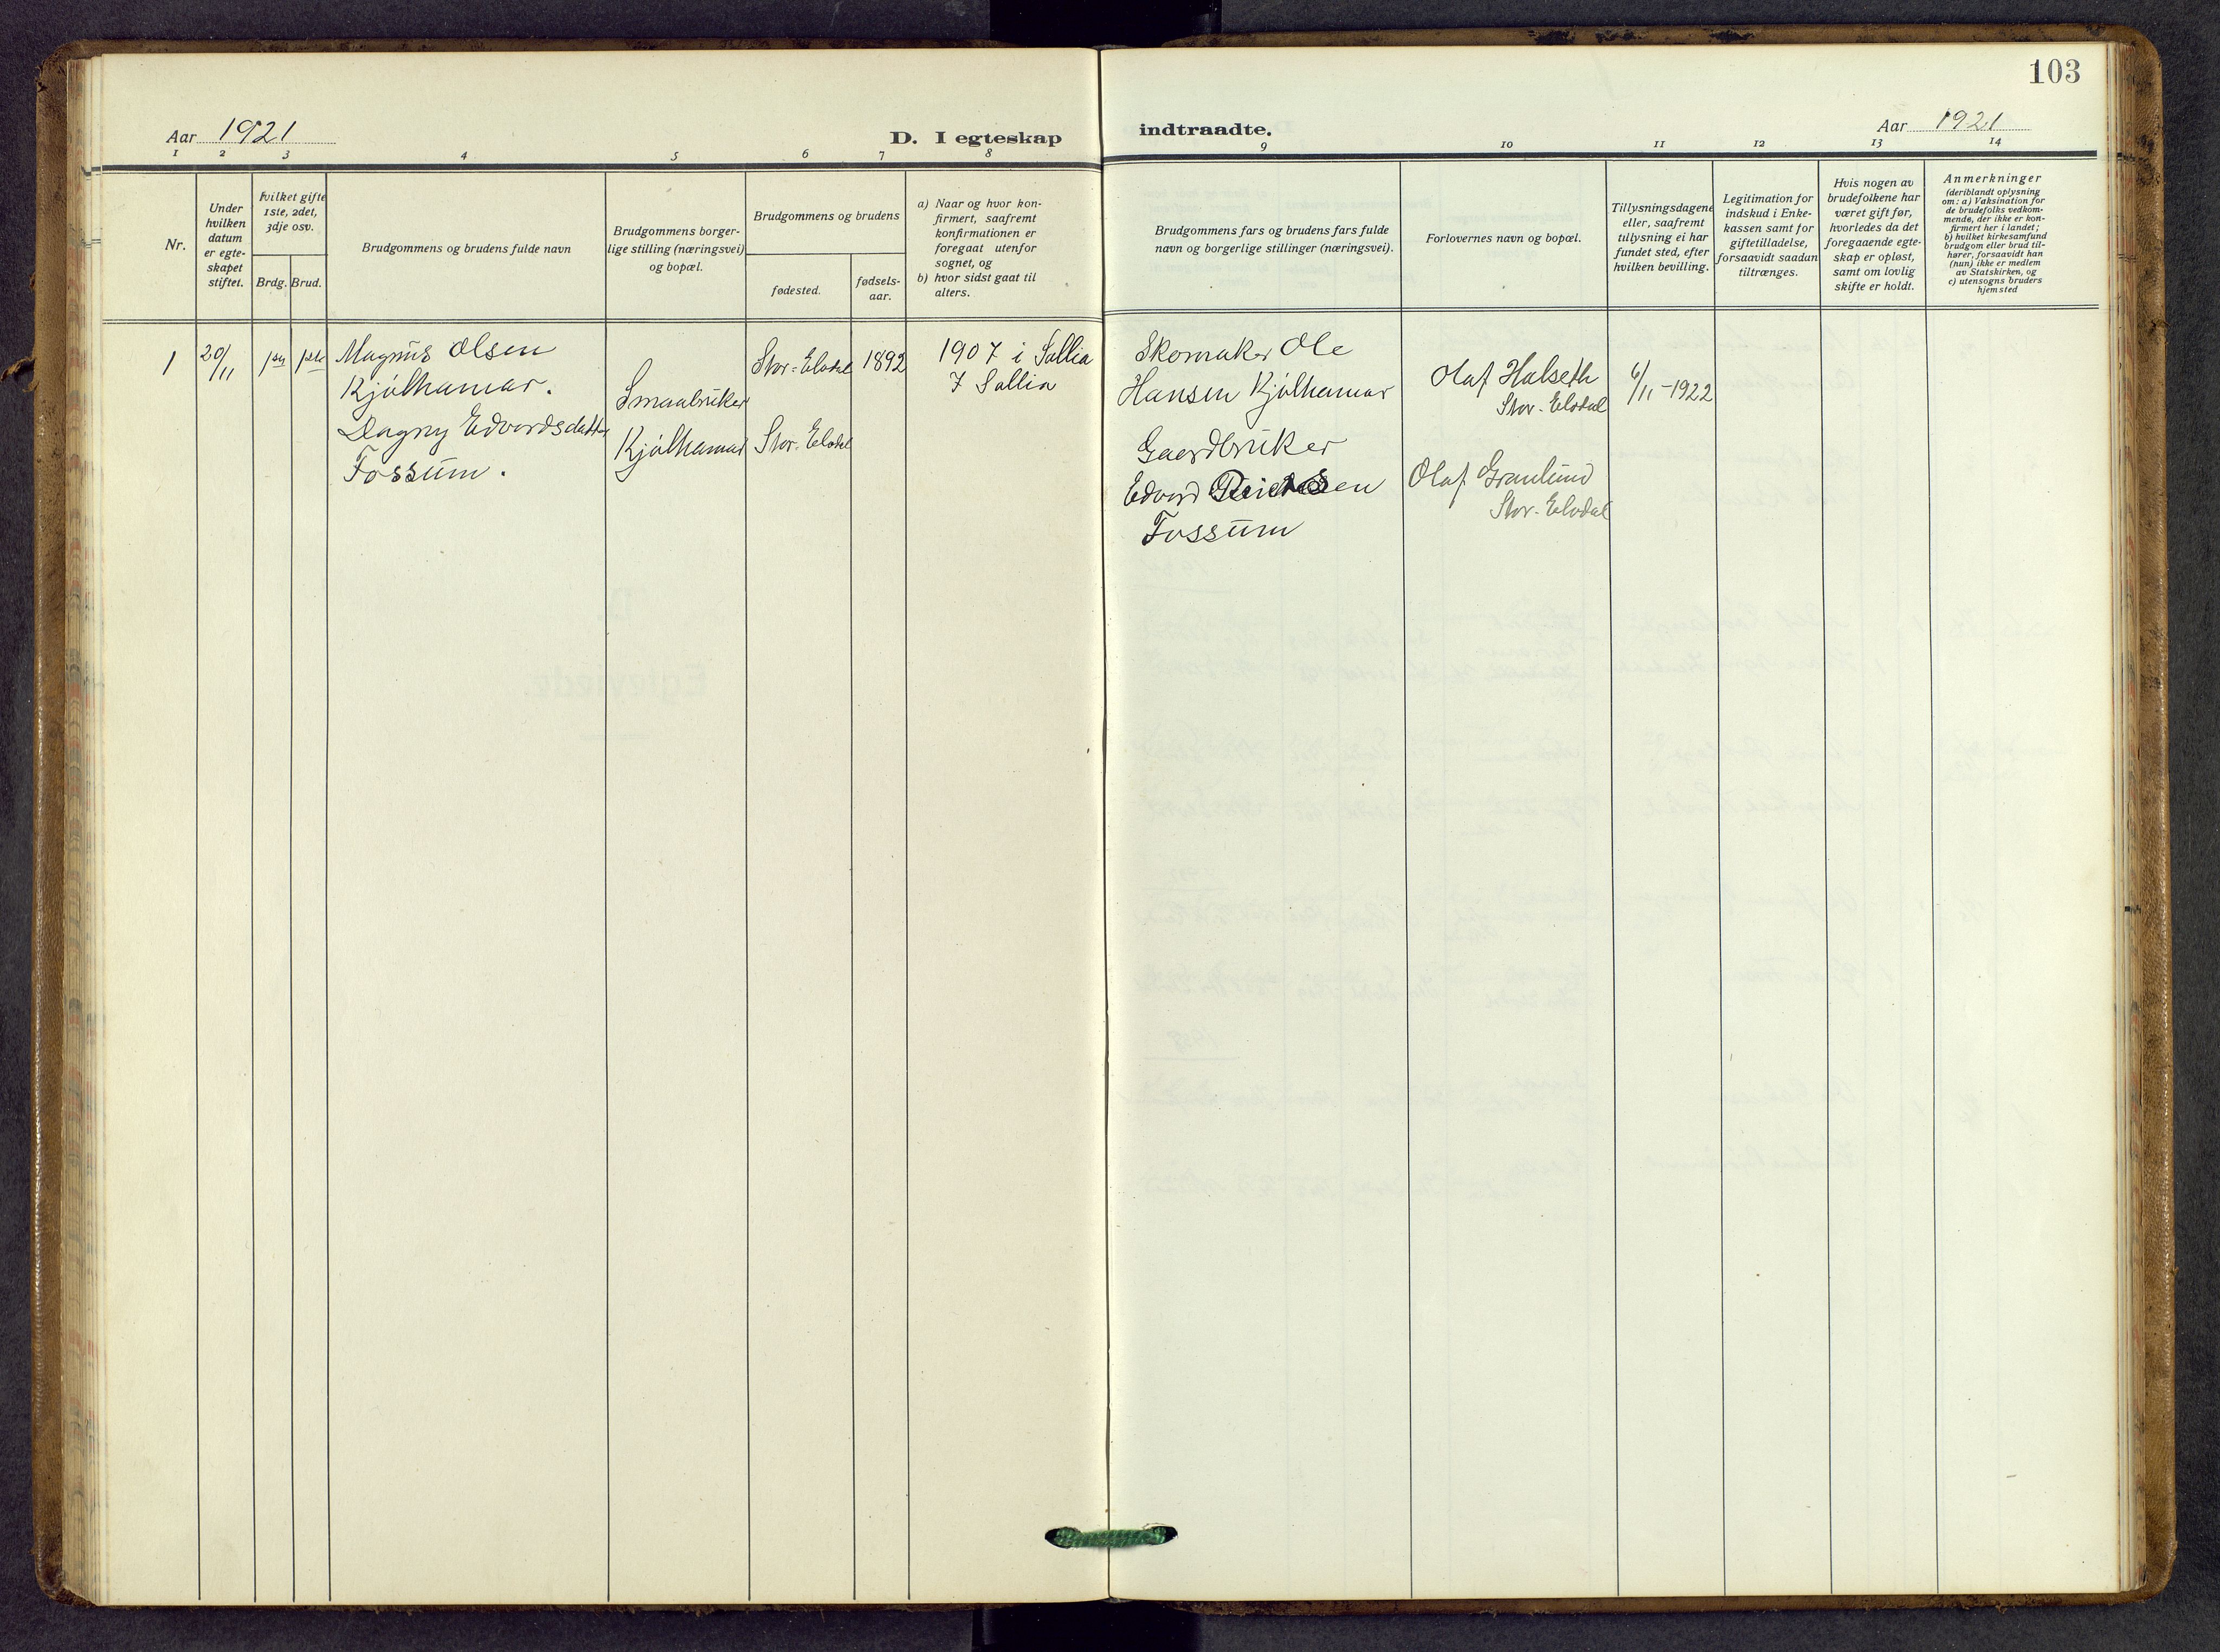 103
Aar 1921
D. I egteskap
indtraadte.
Aar 1921
1 2 3 4 5 6 7 8 9 10 11 12 13 14
Nr.
Under hvilken datum er egteskapet stiftet.
Hvilket gifte 1ste, 2det, 3dje osv.
Brdg. Brud.
Brudgommens og brudens fulde navn
Brudgommens borgerlige stilling (næringsvei) og bopæl.
Brudgommens og brudens
fødested.
fødselsaar.
a) Naar og hvor konfirmert, saafremt konfirmationen er foregaat utenfor sognet, og
b) hvor sidst gaat til alters.
Brudgommens fars og brudens fars fulde navn og borgerlige stillinger (næringsvei).
Forlovernes navn og bopæl.
Tillysningsdagene eller, saafremt tillysning ei har fundet sted, efter hvilken bevilling.
Legitimation for indskud i Enkekassen samt for giftetilladelse, forsaavidt saadan tiltrænges.
Hvis nogen av brudefolkene har været gift før, hvorledes da det foregaaende egteskap er opløst, samt om lovlig skifte er holdt.
Anmerkninger
(deriblandt oplysning om: a) Vaksination for de brudefolks vedkommende, der ikke er konfirmert her i landet;
b) hvilket kirkesamfund brudgom eller brud tilhører, forsaavidt han (hun) ikke er medlem av Statskirken, og
c) utensogns bruders hjemsted
1
20/11
1ste
1ste
Magnus Olsen
Kjølhamar.
Dagny Edvardsdatter
Fossum.
Smaabruker
Kjølhamar
Stor-Elvdal
Stor-Elvdal
1892
1907 i Sollia
I Sollia
Skomaker Ole
Hansen Kjølhamar
Gaardbruker
Edvard
Fossum
Olaf Halseth
Stor-Elvdal
Olaf Granlund
Stor-Elvdal
6/11-1922